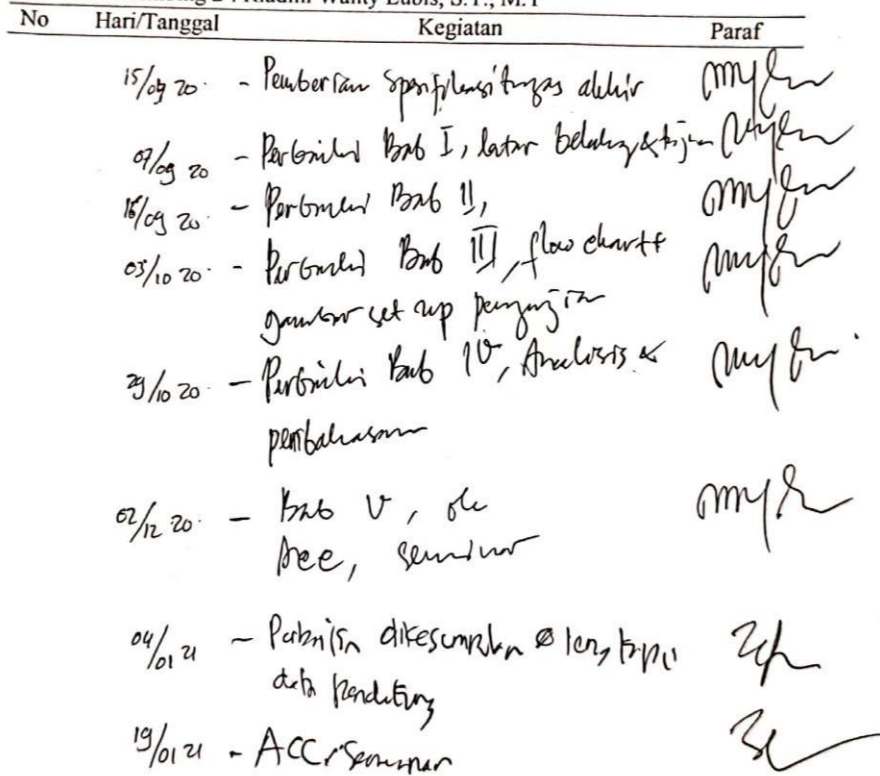 2 : Riadini Wanty Lubis, S.T., M.T
No Hari/Tanggal Kegiatan Paraf
15/09 20 - Pemberian Spesifikasi tugas akhir
07/09 20 - Perbaiki Bab I, latar belakang & tujuan
16/09 20 - Perbaiki Bab II,
03/10 20 - Perbaiki Bab III, flow chart &
gambar set up pengujian
29/10 20 - Perbaiki Bab IV, Analisis &
pembahasan
02/12 20 - Bab V, ok
Acc, seminar
04/01 21 - Perbaikan dikesimpulan lengkapi
data pendukung
19/01 21 - ACC, Seminar